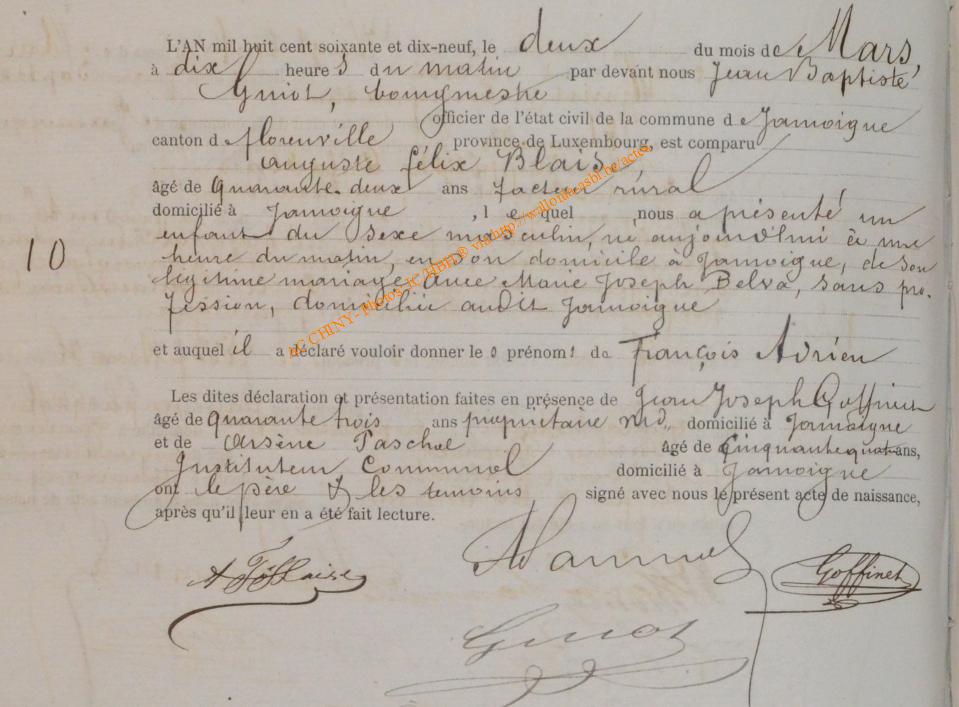 L'AN mil huit cent soixante et dix-neuf, le deux du mois de Mars,
à dix heures du matin par devant nous Jean Baptiste
Guiot, bourgmestre
officier de l'état civil de la commune de Jamoigne
canton de florenville province de Luxembourg, est comparu
auguste félix Blais
âgé de quarante-deux ans facteur rural
domicilié à Jamoigne, lequel, nous a présenté un
enfant du sexe masculin, né aujourd'hui à une
10
heure du matin, en son domicile à Jamoigne, de son
légitime mariage avec Marie Joseph Belva, sans pro-
fession, domiciliée audit Jamoigne
et auquel il a déclaré vouloir donner le s prénoms de François Adrien
Les dites déclaration et présentation faites en présence de Jean Joseph Goffinet
âgé de quarante trois ans propriétaire domicilié à Jamoigne
et de Arsène Paschal âgé de cinquante quatre ans,
Instituteur Communal domicilié à Jamoigne
ont le père & les temoins signé avec nous le présent acte de naissance,
après qu'il leur en a été fait lecture.
Goffinet
Guiot
AG CHINY - photos IC/HBH © via http://wallonia-asbl.be/actes